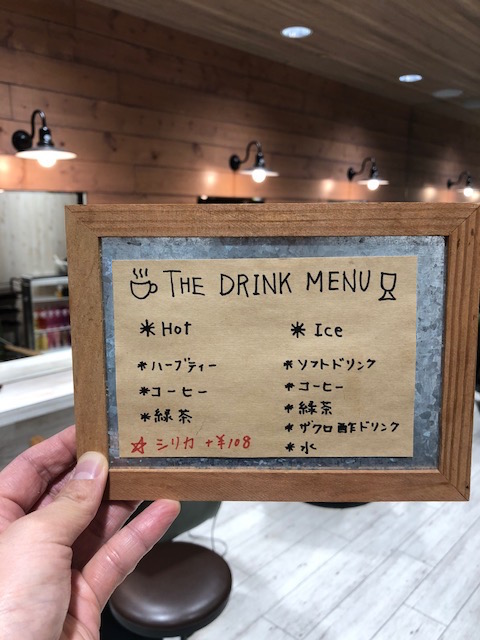 THE DRINK MENU
* Hot
* ハーブティー
* コーヒー
* 緑茶
☆ シリカ +¥108
* Ice
* ソフトドリンク
* コーヒー
* 緑茶
* ザクロ酢ドリンク
* 水